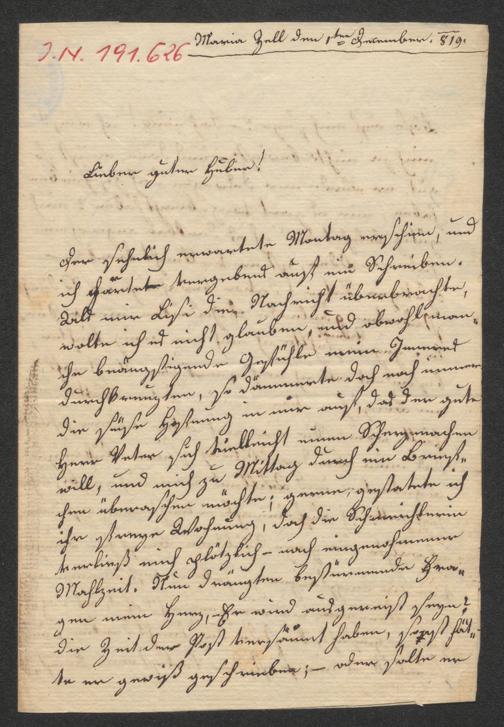 J.N. 191.626
Maria Zell den 1ten December. 819.
Lieber guter Huber!
Der sehnlich erwartete Montag erschien, und
ich harte vergebend auf ein Schreiben.
Als mir Lisi die Nachricht überbrachte,
wolte ich es nicht glauben, und obwohl man-
che beängstigende Gefühle mein Inneres
durchkreuzten, so dämmerte doch noch immer
die süße Hoffnung in mir auf, das der gute
Herr Vater sich vielleicht einen Scherz machen
will, und mich zu Mittag durch ein Brief-
chen überraschen möchte; gerne gestatete ich
ihr strenge Wohnung, doch die Schmeichlerin
verließ mich plötzlich – nach eingenohmener
Mahlzeit. Nun drängten bestürmende Fra-
gen mein Herz, – Er wird ausgereist seyn?
die Zeit der Post versäumt haben, sonst hät-
te er gewiß geschrieben; – oder solte er